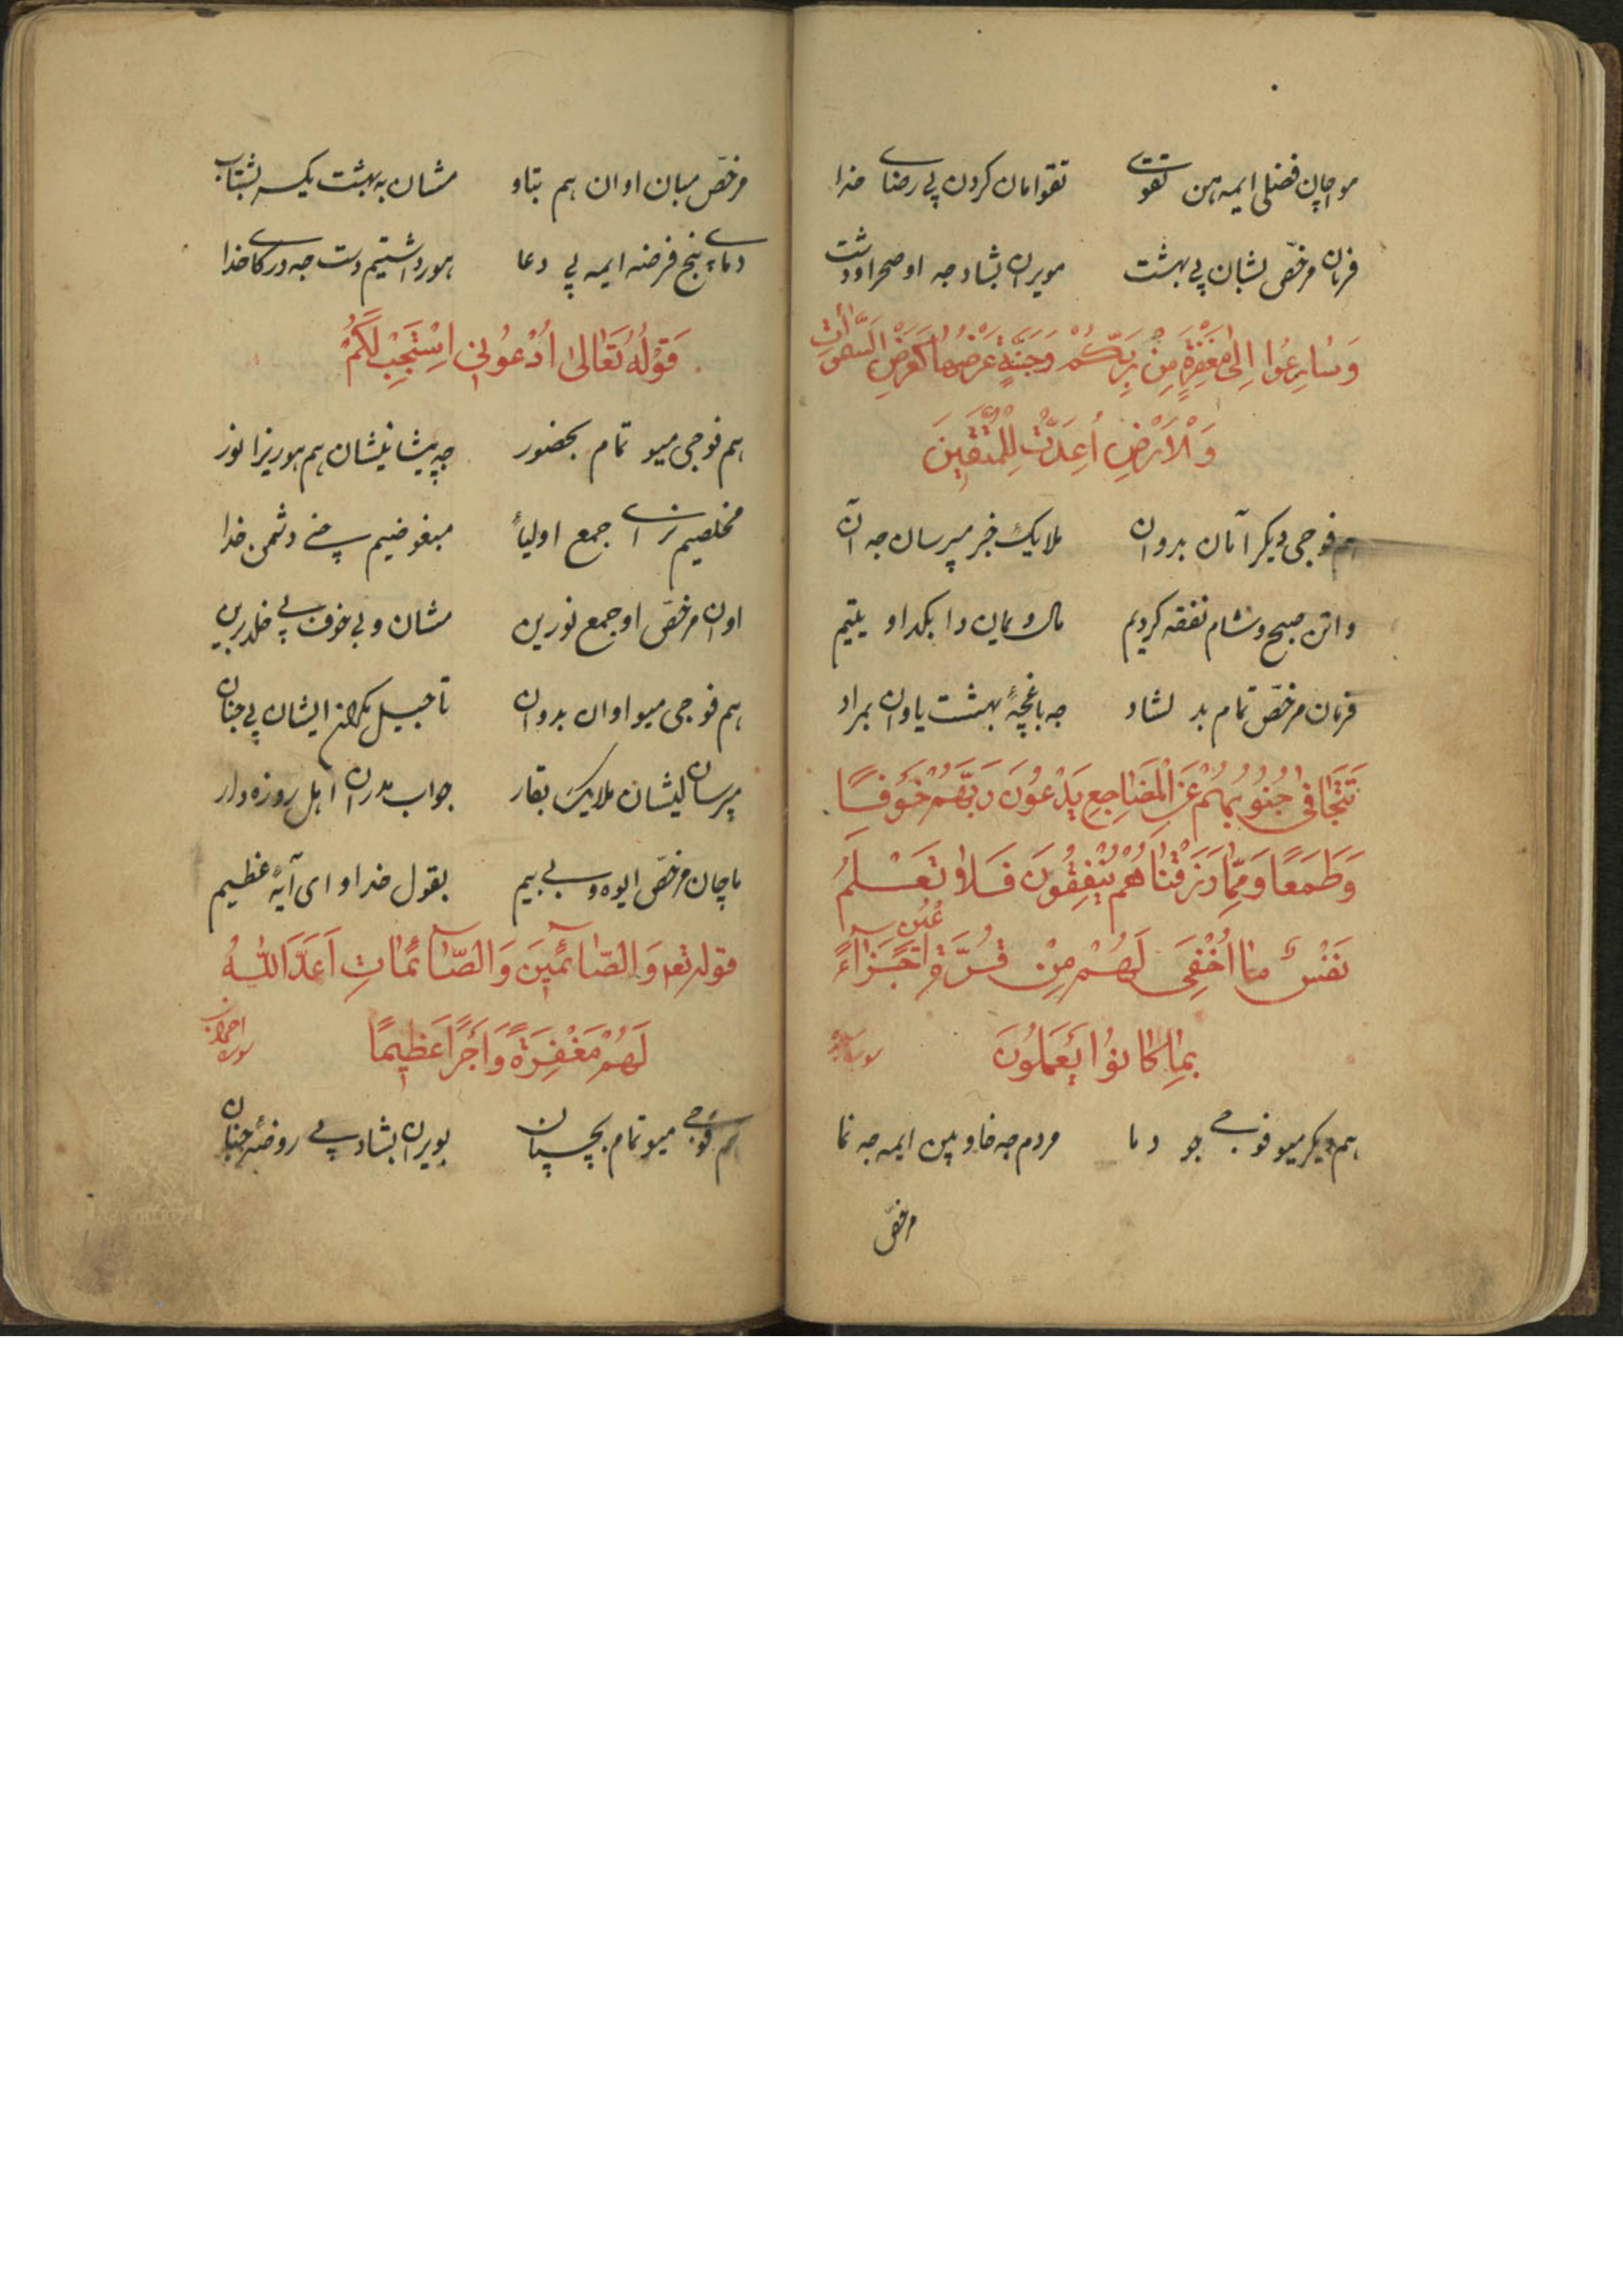 مواچان فضلی ایمه هن تقوی تقوامان کردن پی رضای خدا
فرمان مرخّص بشان پی بهشت مویران بشاد جه او صحراو دشت
وَسَارِعُوا اِلیٰ مَغْفِرَةٍ مِنْ رَبِّكُمْ وَجَنَّةٍ عَرْضُهَا كَعَرْضِ السَّمٰوَاتِ
وَالْاَرْضِ اُعِدَّتْ لِلْمُتَّقِينَ
هم فوجی دیکر آمان بدوان ملایک خبر میپرسان جه آن
واتن صبح و شام نفقه کردیم مال ویمان دا بکدا و یتیم
فرمان مرخّص تمام بد لشاد جه باغچهٔ بهشت یاوان بمراد
تَتَجَافٰى جُنُوبُهُمْ عَنِ الْمَضَاجِعِ يَدْعُونَ رَبَّهُمْ خَوْفًا
وَطَمَعًا وَمِمَّا رَزَقْنَاهُمْ يُنْفِقُونَ فَلَا تَعْلَمُ
نَفْسٌ مَا اُخْفِیَ لَهُمْ مِنْ قُرَّةِ اَعْيُنٍ جَزَاءً
بِمَا كَانُوا يَعْمَلُونَ
هم دیکر میو فوجی جو دما مردم جه خاو بین ایمه جه نما
مرخّص
مرخّص مبان اوان هم بتاو مشان به بهشت یکسر بشتاب
دمای پنج فرضه ایمه پی دعا هورداشتیم دست جه درکای خدا
قَوْلُهُ تَعَالیٰ اُدْعُونِی اَسْتَجِبْ لَكُمْ
هم فوجی میو تمام بحضور جه پیشانیشان هم هور یزا نور
مخلصیم نزای جمع اولیاٴ مبغوضیم پی دشمن خدا
اوان مرخّص او جمع نورین مشان و بی خوف پی خلد برین
هم فوجی میو اوان بدوان تاجیل مکران ایشان پی جنان
مپرسان لیشان ملایک بقار جواب مدران اهل روزه دار
ماچان مرخّص ایوه و بی بیم بقول خدا و ای آیهٔ عظیم
قوله تعه وَالصَّائِمِينَ وَالصَّائِمَاتِ اَعَدَّ اللهُ
لَهُمْ مَغْفِرَةً وَاَجْرًا عَظِيمًا
سوره احزاب
هم فوجی میو تمام بچسپان بویران بشاد پی روضهٔ جنان